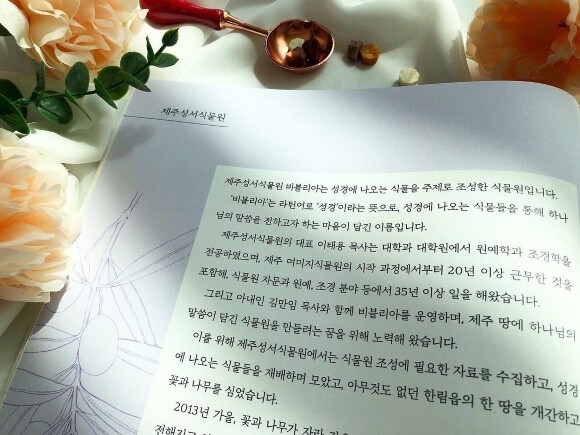 제주성서식물원
제주성서식물원 비블리아는 성경에 나오는 식물을 주제로 조성한 식물원입니다.
'비블리아'는 라틴어로 '성경'이라는 뜻으로, 성경에 나오는 식물들을 통해 하나
님의 말씀을 전하고자 하는 마음이 담긴 이름입니다.
제주성서식물원의 대표 이태용 목사는 대학과 대학원에서 원예학과 조경학을
전공하였으며, 제주 여미지식물원의 시작 과정에서부터 20년 이상 근무한 것을
포함해, 식물원 자문과 원예, 조경 분야 등에서 35년 이상 일을 해왔습니다.
그리고 아내인 김만임 목사와 함께 비블리아를 운영하며, 제주 땅에 하나님의
말씀이 담긴 식물원을 만들려는 꿈을 위해 노력해 왔습니다.
이를 위해 제주성서식물원에서는 식물원 조성에 필요한 자료를 수집하고, 성경
에 나오는 식물들을 재배하며 모았고, 아무것도 없던 한림읍의 한 땅을 개간하고
꽃과 나무를 심었습니다.
2013년 가을, 꽃과 나무가 자라